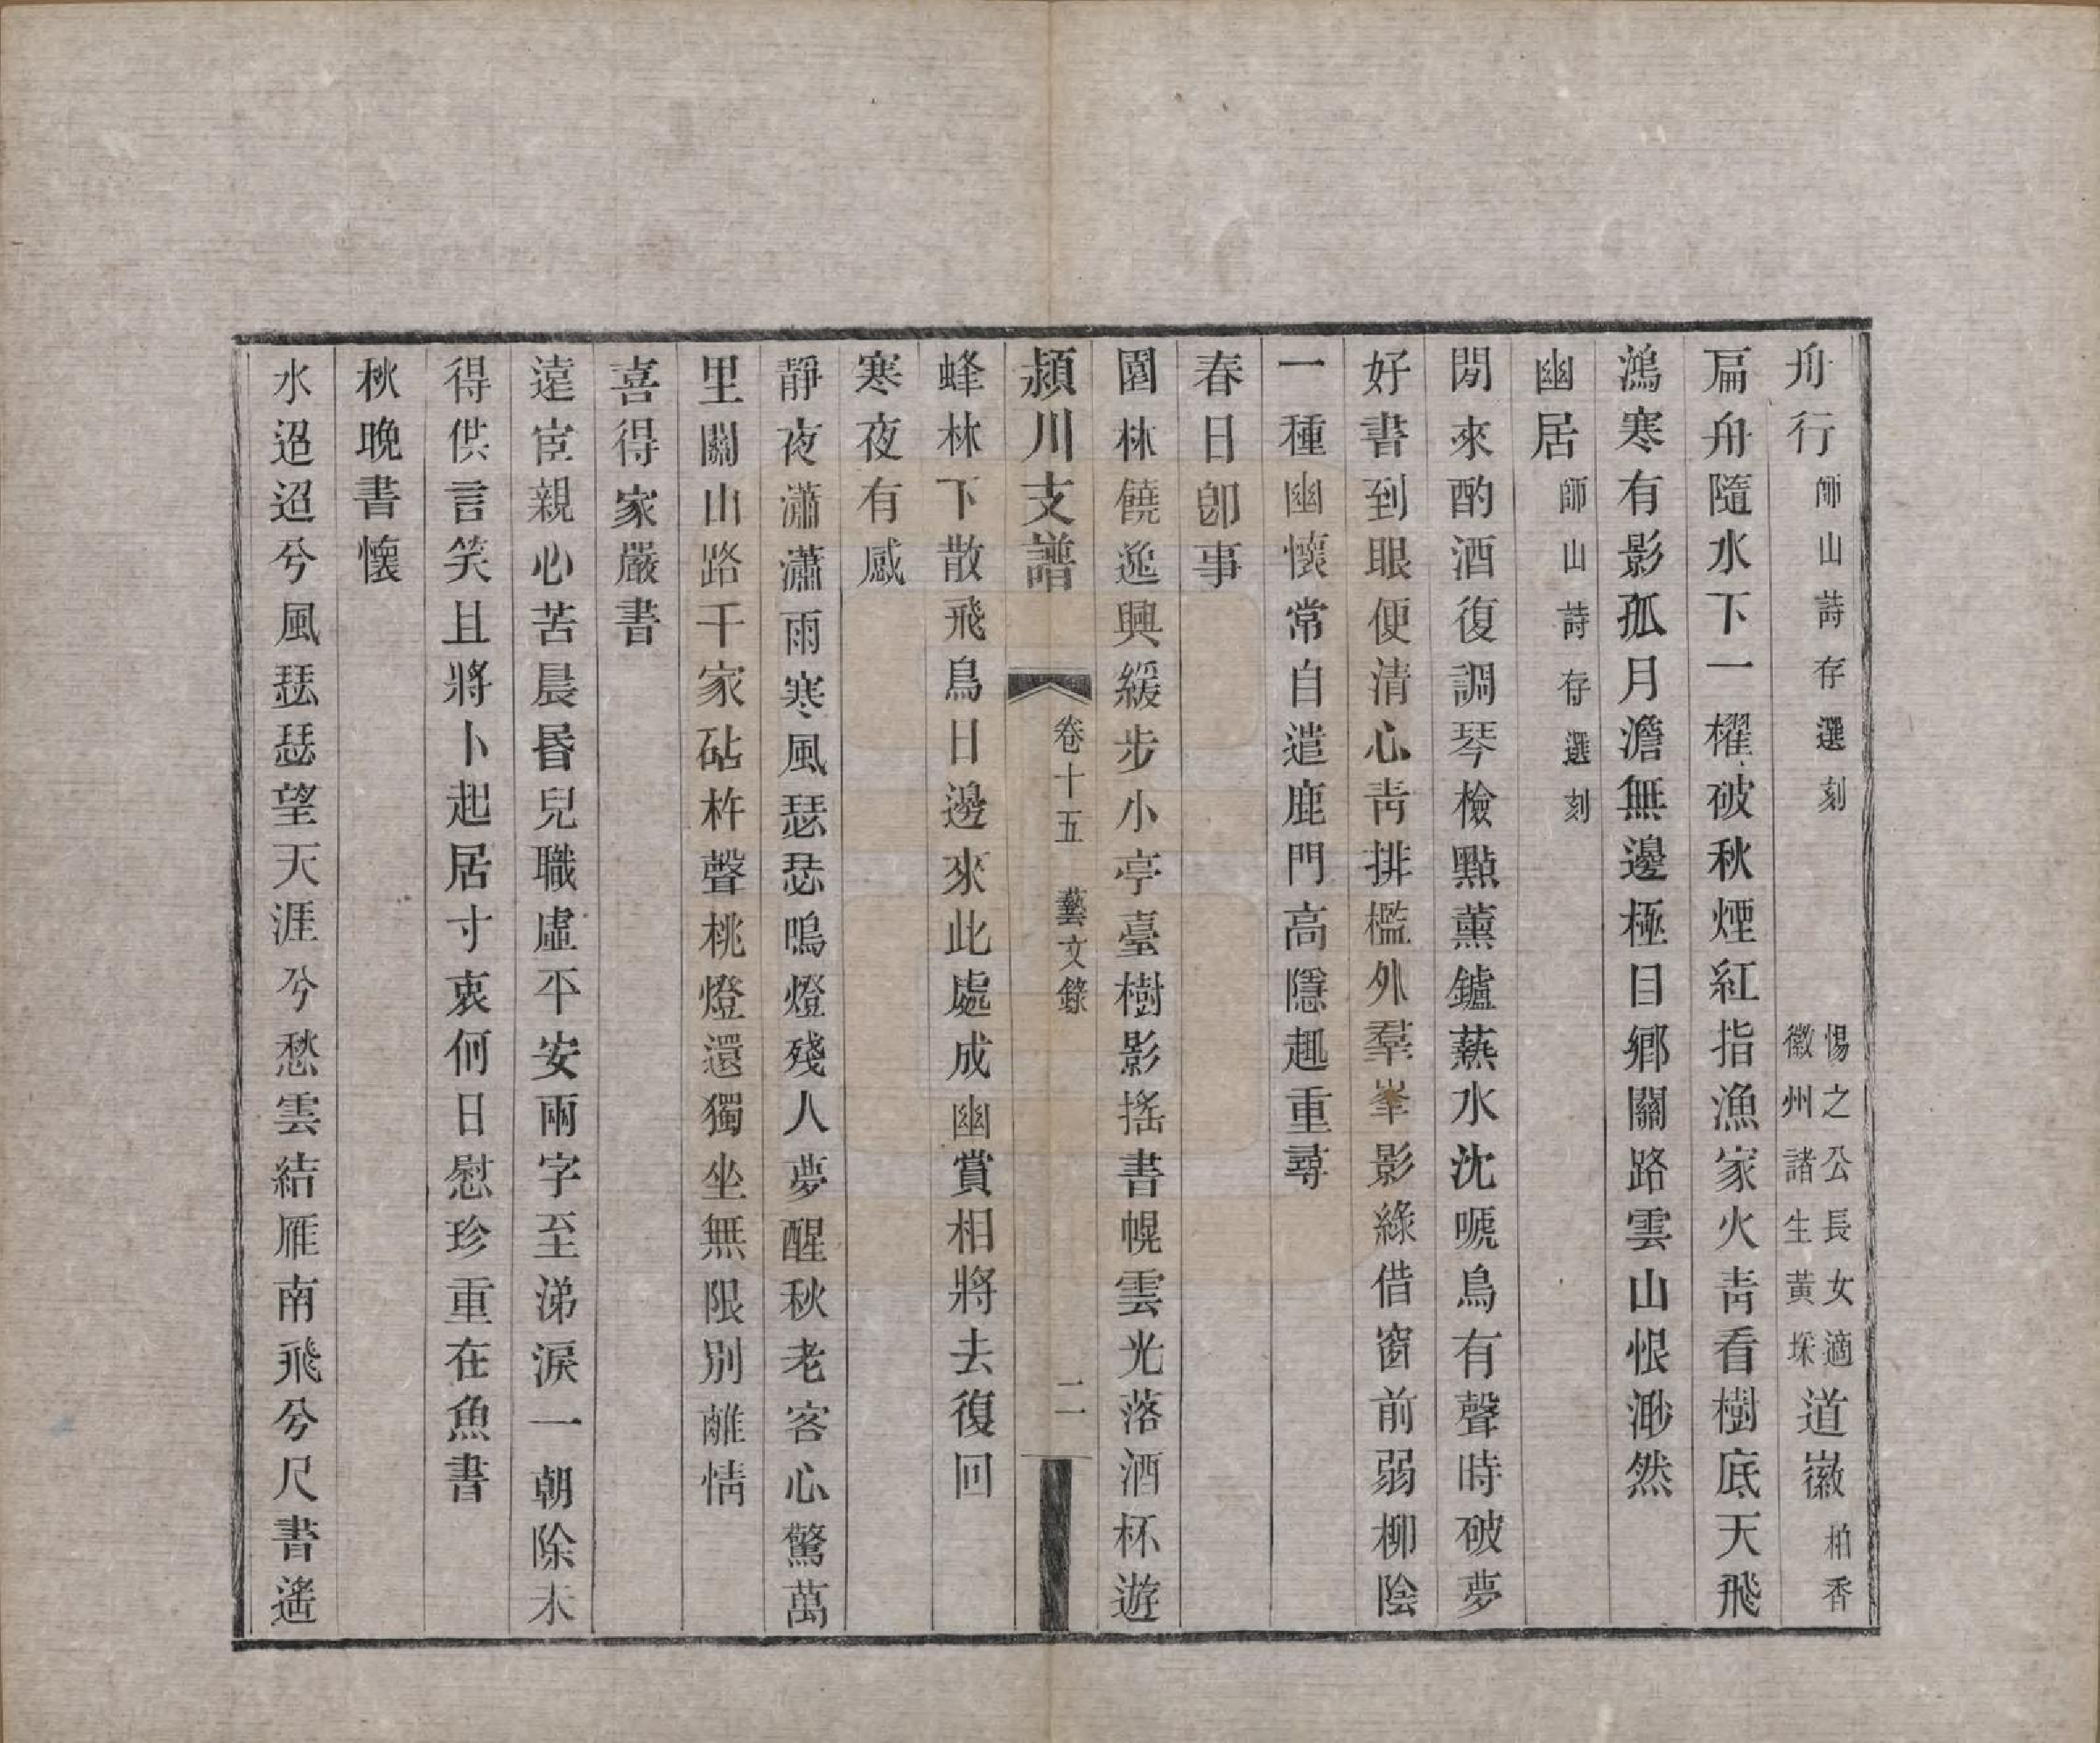 舟行師山詩存選刻　惕之公長女適徽州諸生黃埰道徽柏香
扁舟隨水下一櫂破秋煙紅指漁家火靑看樹底天飛
鴻寒有影孤月澹無邊極目鄉關路雲山恨渺然
幽居師山詩存選刻
閒來酌酒復調琴檢點薰鑪爇水沈嗁鳥有聲時破夢
好書到眼便清心靑排檻外羣峯影綠借窗前弱柳陰
一種幽懷常自遣鹿門高隱趣重尋
春日卽事
園林饒逸興緩步小亭臺樹影搖書幌雲光落酒杯遊
潁川支譜　卷十五　藝文錄　二
蜂林下散飛鳥日邊來此處成幽賞相將去復回
寒夜有感
靜夜瀟瀟雨寒風瑟瑟鳴燈殘人夢醒秋老客心驚萬
里關山路千家砧杵聲桃燈還獨坐無限別離情
喜得家嚴書
遠宦親心苦晨昏兒職虛平安兩字至涕淚一朝除未
得供言笑且將卜起居寸衷何日慰珍重在魚書
秋晚書懷
水迢迢兮風瑟瑟望天涯兮愁雲結雁南飛兮尺書遙